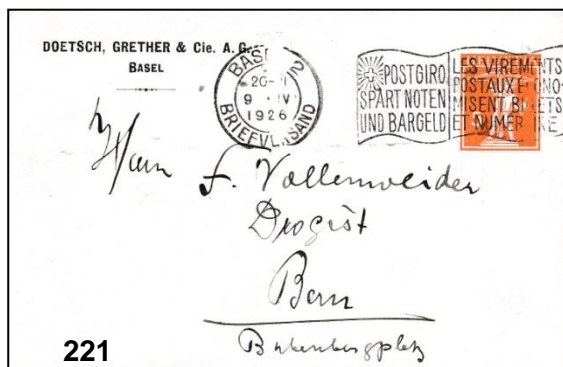 DOETSCH, GRETHER & Cie. A. G.
BASEL
BASEL 2
9. IV
1926
BRIEFVERSAND
POSTGIRO
SPART NOTEN
UND BARGELD
LES VIREMENTS
POSTAUX ECONO-
MISENT BILLETS
ET NUMERAIRE
Herrn
F. Vollenweider
Drogist
Bern
Bubenbergplatz
221